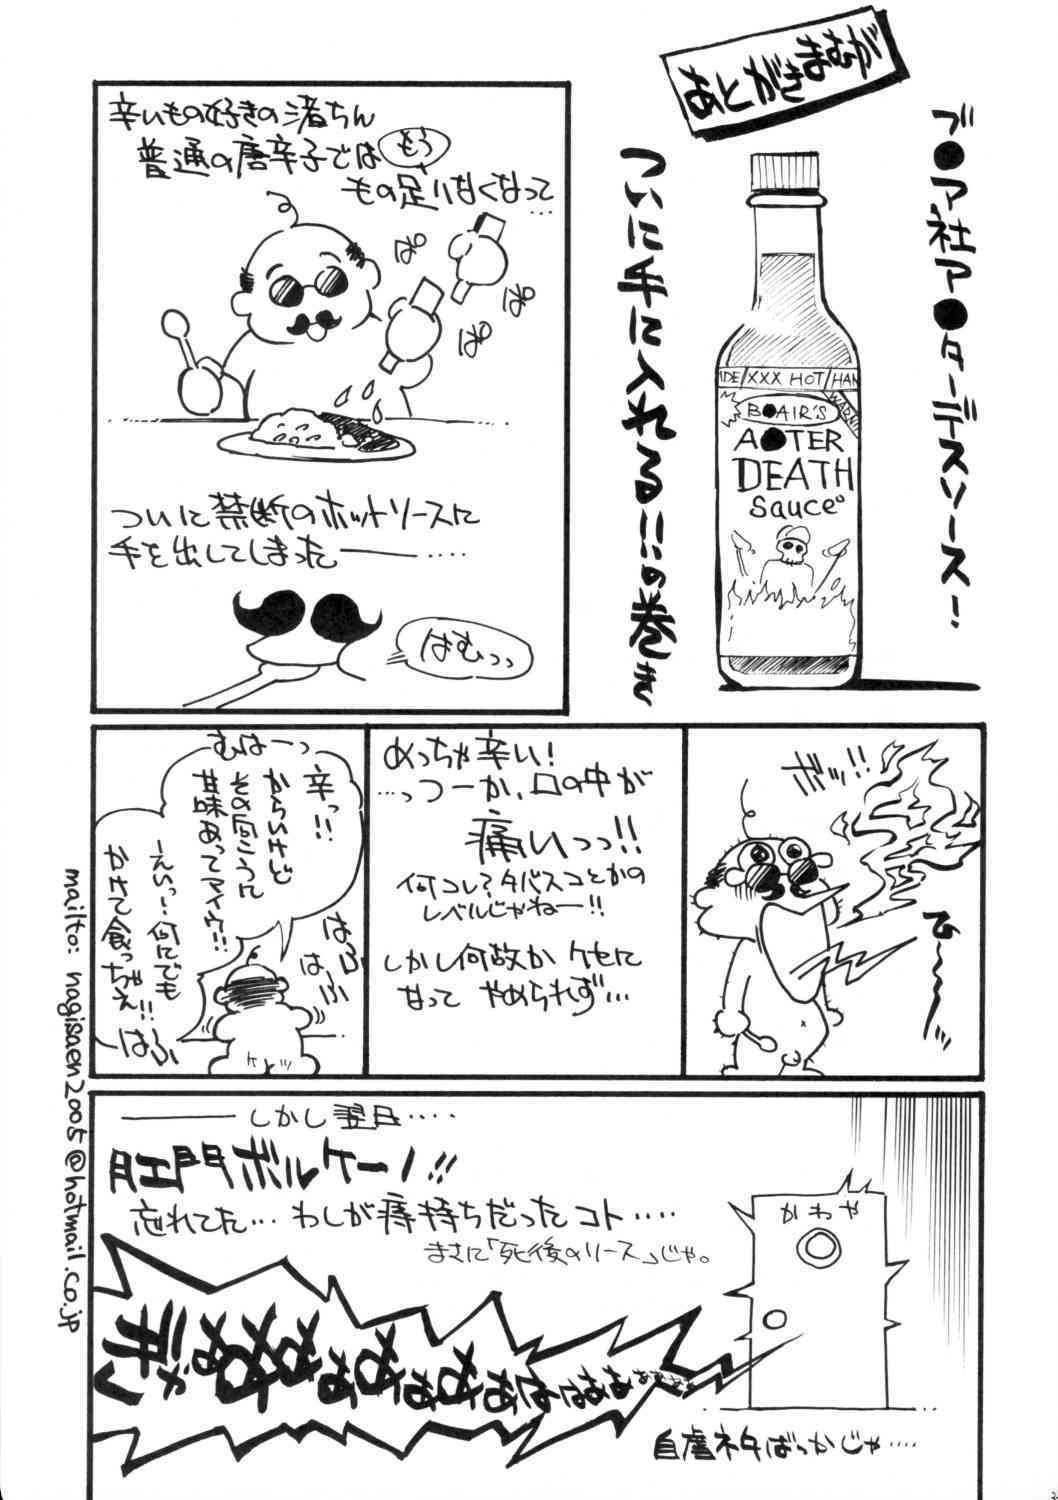 あとがきまむが
ブ●ア社ア●ターデスソース!
ついに手に入れる!!の巻き
IDE/XXX HOT/HAN
WARNIN
B●AIR'S
A●TER
DEATH
Sauce
辛いもの好きの渚ちん
普通の唐辛子ではもう
もの足りなくなって…
ぱ
ぱ
ぱ
ぱ
ついに禁断のホットソースに
手を出してしまった――‥‥
はむっっ
ボッ!!
ひ~~~ッ
めっちゃ辛い!
…っつーか、口の中が
痛いっっ!!
何コレ?タバスコとかの
レベルじゃねー!!
しかし何故かクセに
なって やめられず…
むはーっ
辛っ!!
からいけど
その向こうに
甘味あってマイウ!!
ーえいっ…何にでも
かけて食っちゃえ!!
はふ
はふ
はふ
――しかし翌日‥‥
肛門ボルケーノ!!
忘れてた…わしが痔持ちだったコト‥‥
まさに「死後のソース」じゃ。
かわや
ぎゃああああああああはははああああああ
自虐ネタばっかじゃ‥‥
mailto: nagisaen2005@hotmail.co.jp